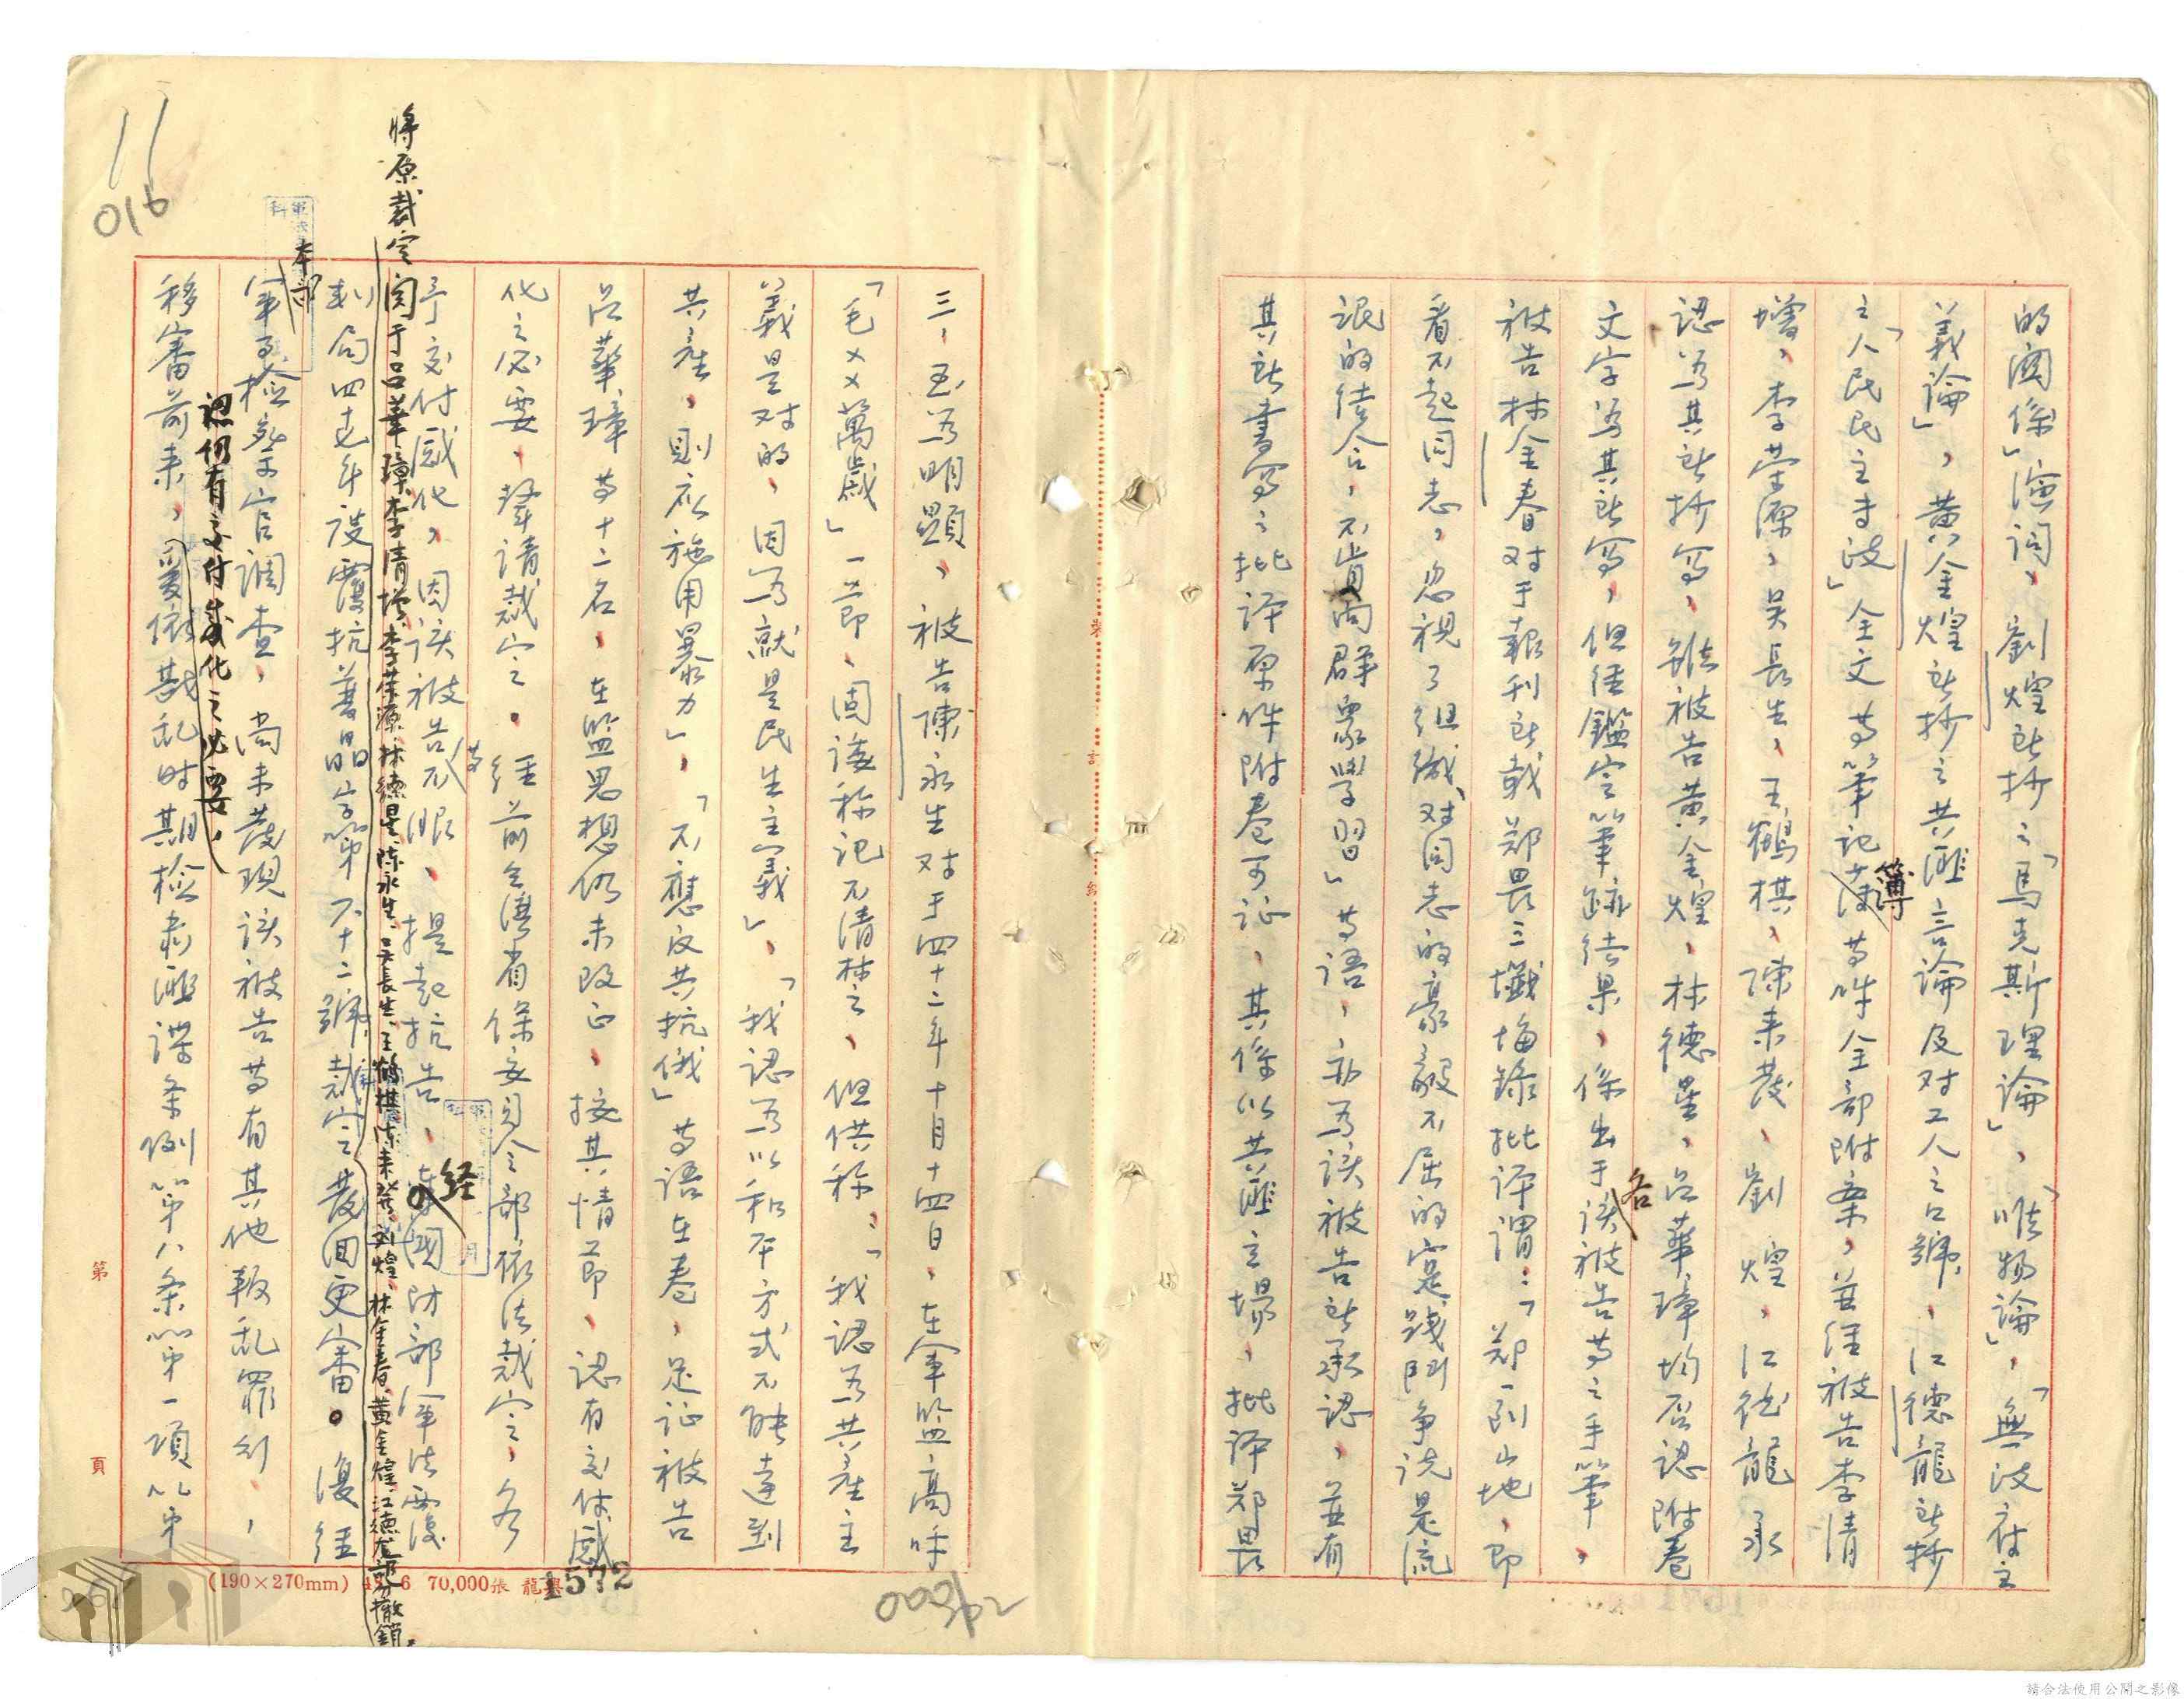 的關係」演詞、劉煌所抄之「馬克斯理論」、「唯物論」、「無政府主
義論」、黃金煌所抄之共匪言論及对工人之口號、江德龍所抄
之「人民民主专政」全文等筆記簿等件全部附案，並經被告李清
增、李荣源、吴長生、王鶴棋、陳来發、劉煌、江德龍承
認為其所抄写、雖被告黃金煌、林德星、呂華璋均否認附卷
文字為其所写，但經鑑定筆跡结果、係出于各该被告等之手筆、
被告林金春对于報刊所載郑畏三懺悔錄批评謂：「郑一到山地，即
看不起同志，忽視了组織、对同志的豪毅不屈的实践鬥争说是流
氓的结合、不肯向群眾學習」等語，亦為该被告所承認、並有
其所書写之批评原件附卷可证、其係以共匪立場，批评郑畏
三，至為明顯、被告陳永生对于四十二年十月十四日，在军监高呼
「毛××萬歲」一節、固諉称记不清楚、但供称：「我認為共產主
義是对的，因為就是民生主義」、「我認為以和平方式不能達到
共產，則应施用暴力」，「不應反共抗俄」等語在卷，足证被告
呂華璋等十二名，在监思想仍未改正、按其情節、認有交付感
化之必要，聲請裁定。經前台湾省保安司令部依法裁定，各
予交付感化，因该被告等不服、提起抗告、经國防部軍法覆
判局四七年度覆抗普晶字第六十二號裁定發回更審。復經
將原裁定関于呂華璋、李清增、李荣源、林德星、陈永生、吴長生、王鶴棋、陈来發、刘煌、林金春、黃金煌、江德龙部分撤銷。
本部
軍事检察官調查，尚未發現该被告等有其他叛乱罪刑，
認仍有交付感化之必要，
移審前来，爰依戡乱时期检肅匪諜条例第八条第一項以第
11
016
第 頁
(190×270mm) 6 70,000张 龍
1572
請合法使用公開之影像